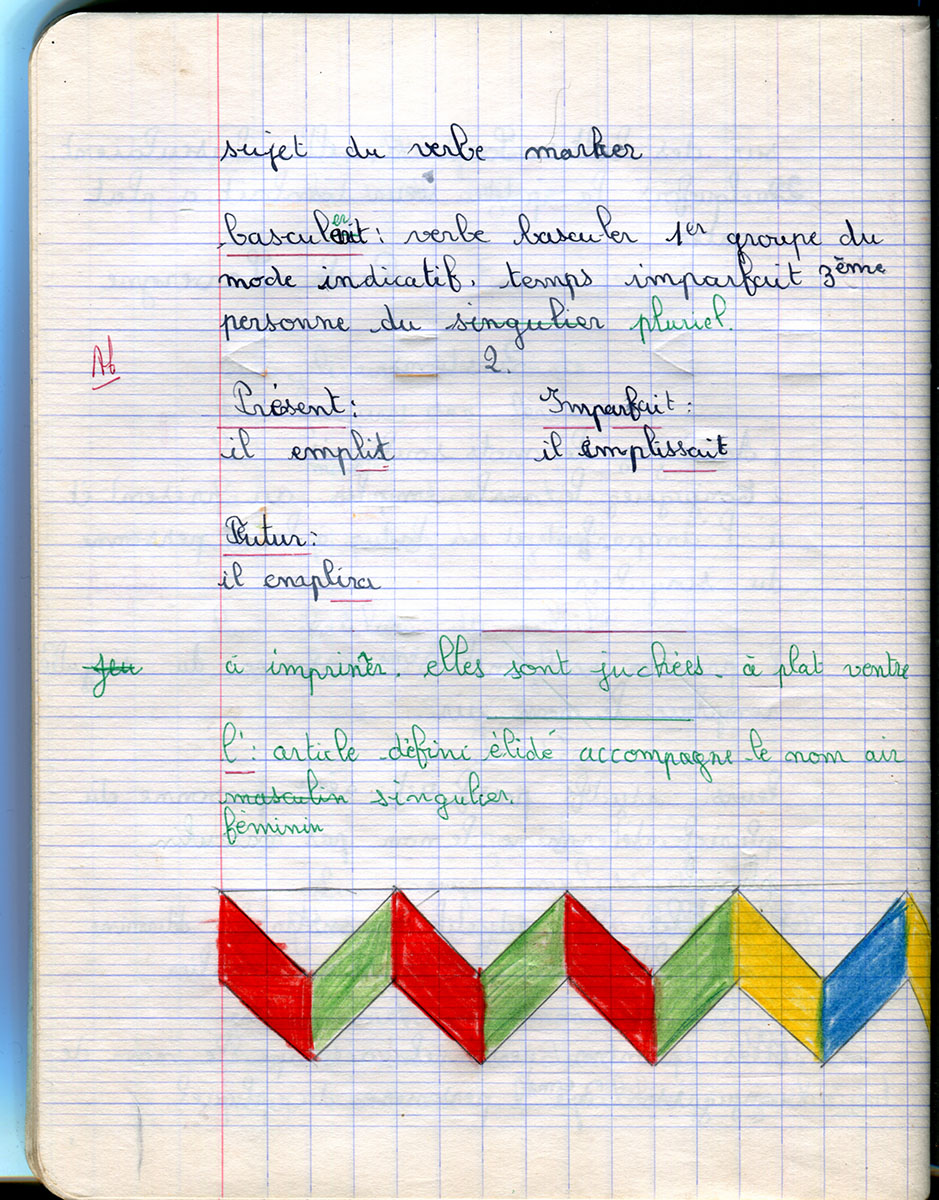 sujet du verbe marker
basculaient : verbe basculer 1er groupe du
mode indicatif, temps imparfait 3ème
personne du singulier pluriel.
2.
Présent : Imparfait :
il emplit il implissait
Futur :
il emplira
jeu à imprimer. elles sont juchées. à plat ventre
l' : article défini élidé accompagne le nom air
masculin singulier.
féminin